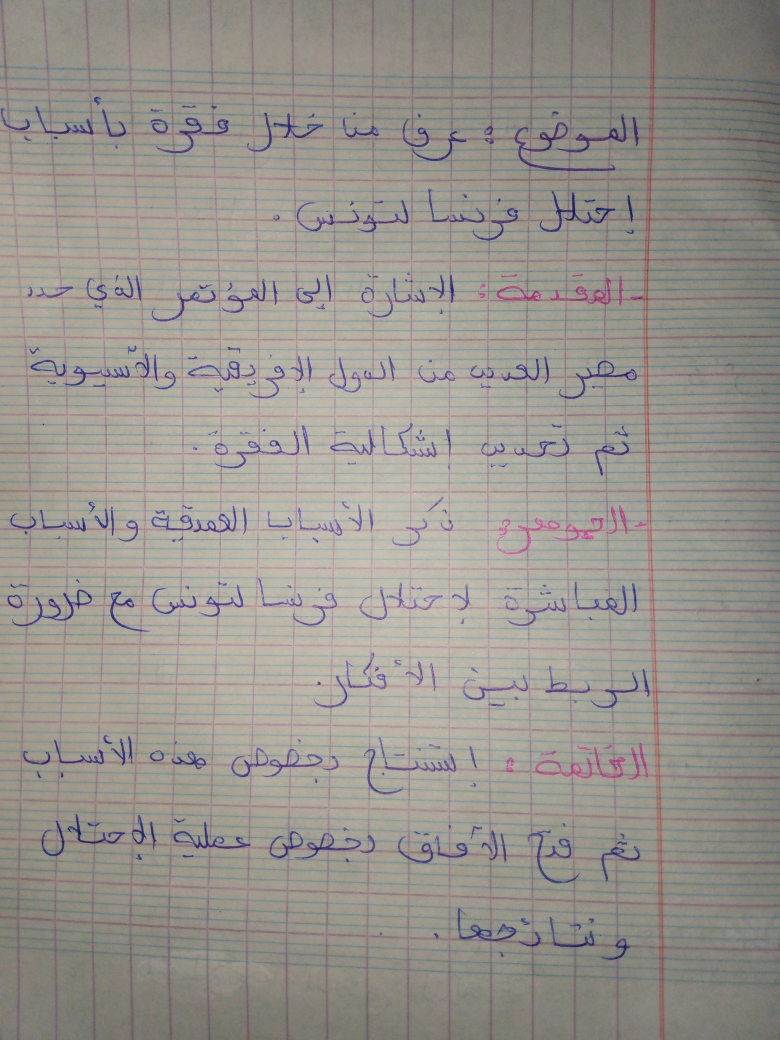 الموضوع : عرف من خلال فقرة بأسباب
إحتلال فرنسا لتونس .
-المقدمة : الإشارة إلى المؤتمر الذي حدد
مصير العديد من الدول الإفريقية والآسيوية
ثم تحديد إشكالية الفقرة .
-الجوهر : ذكر الأسباب العميقة والأسباب
المباشرة لإحتلال فرنسا لتونس مع ضرورة
الربط بين الأفكار .
الخاتمة : إستنتاج بخصوص هذه الأسباب
ثم فتح الآفاق بخصوص عملية الإحتلال
و نتائجها .